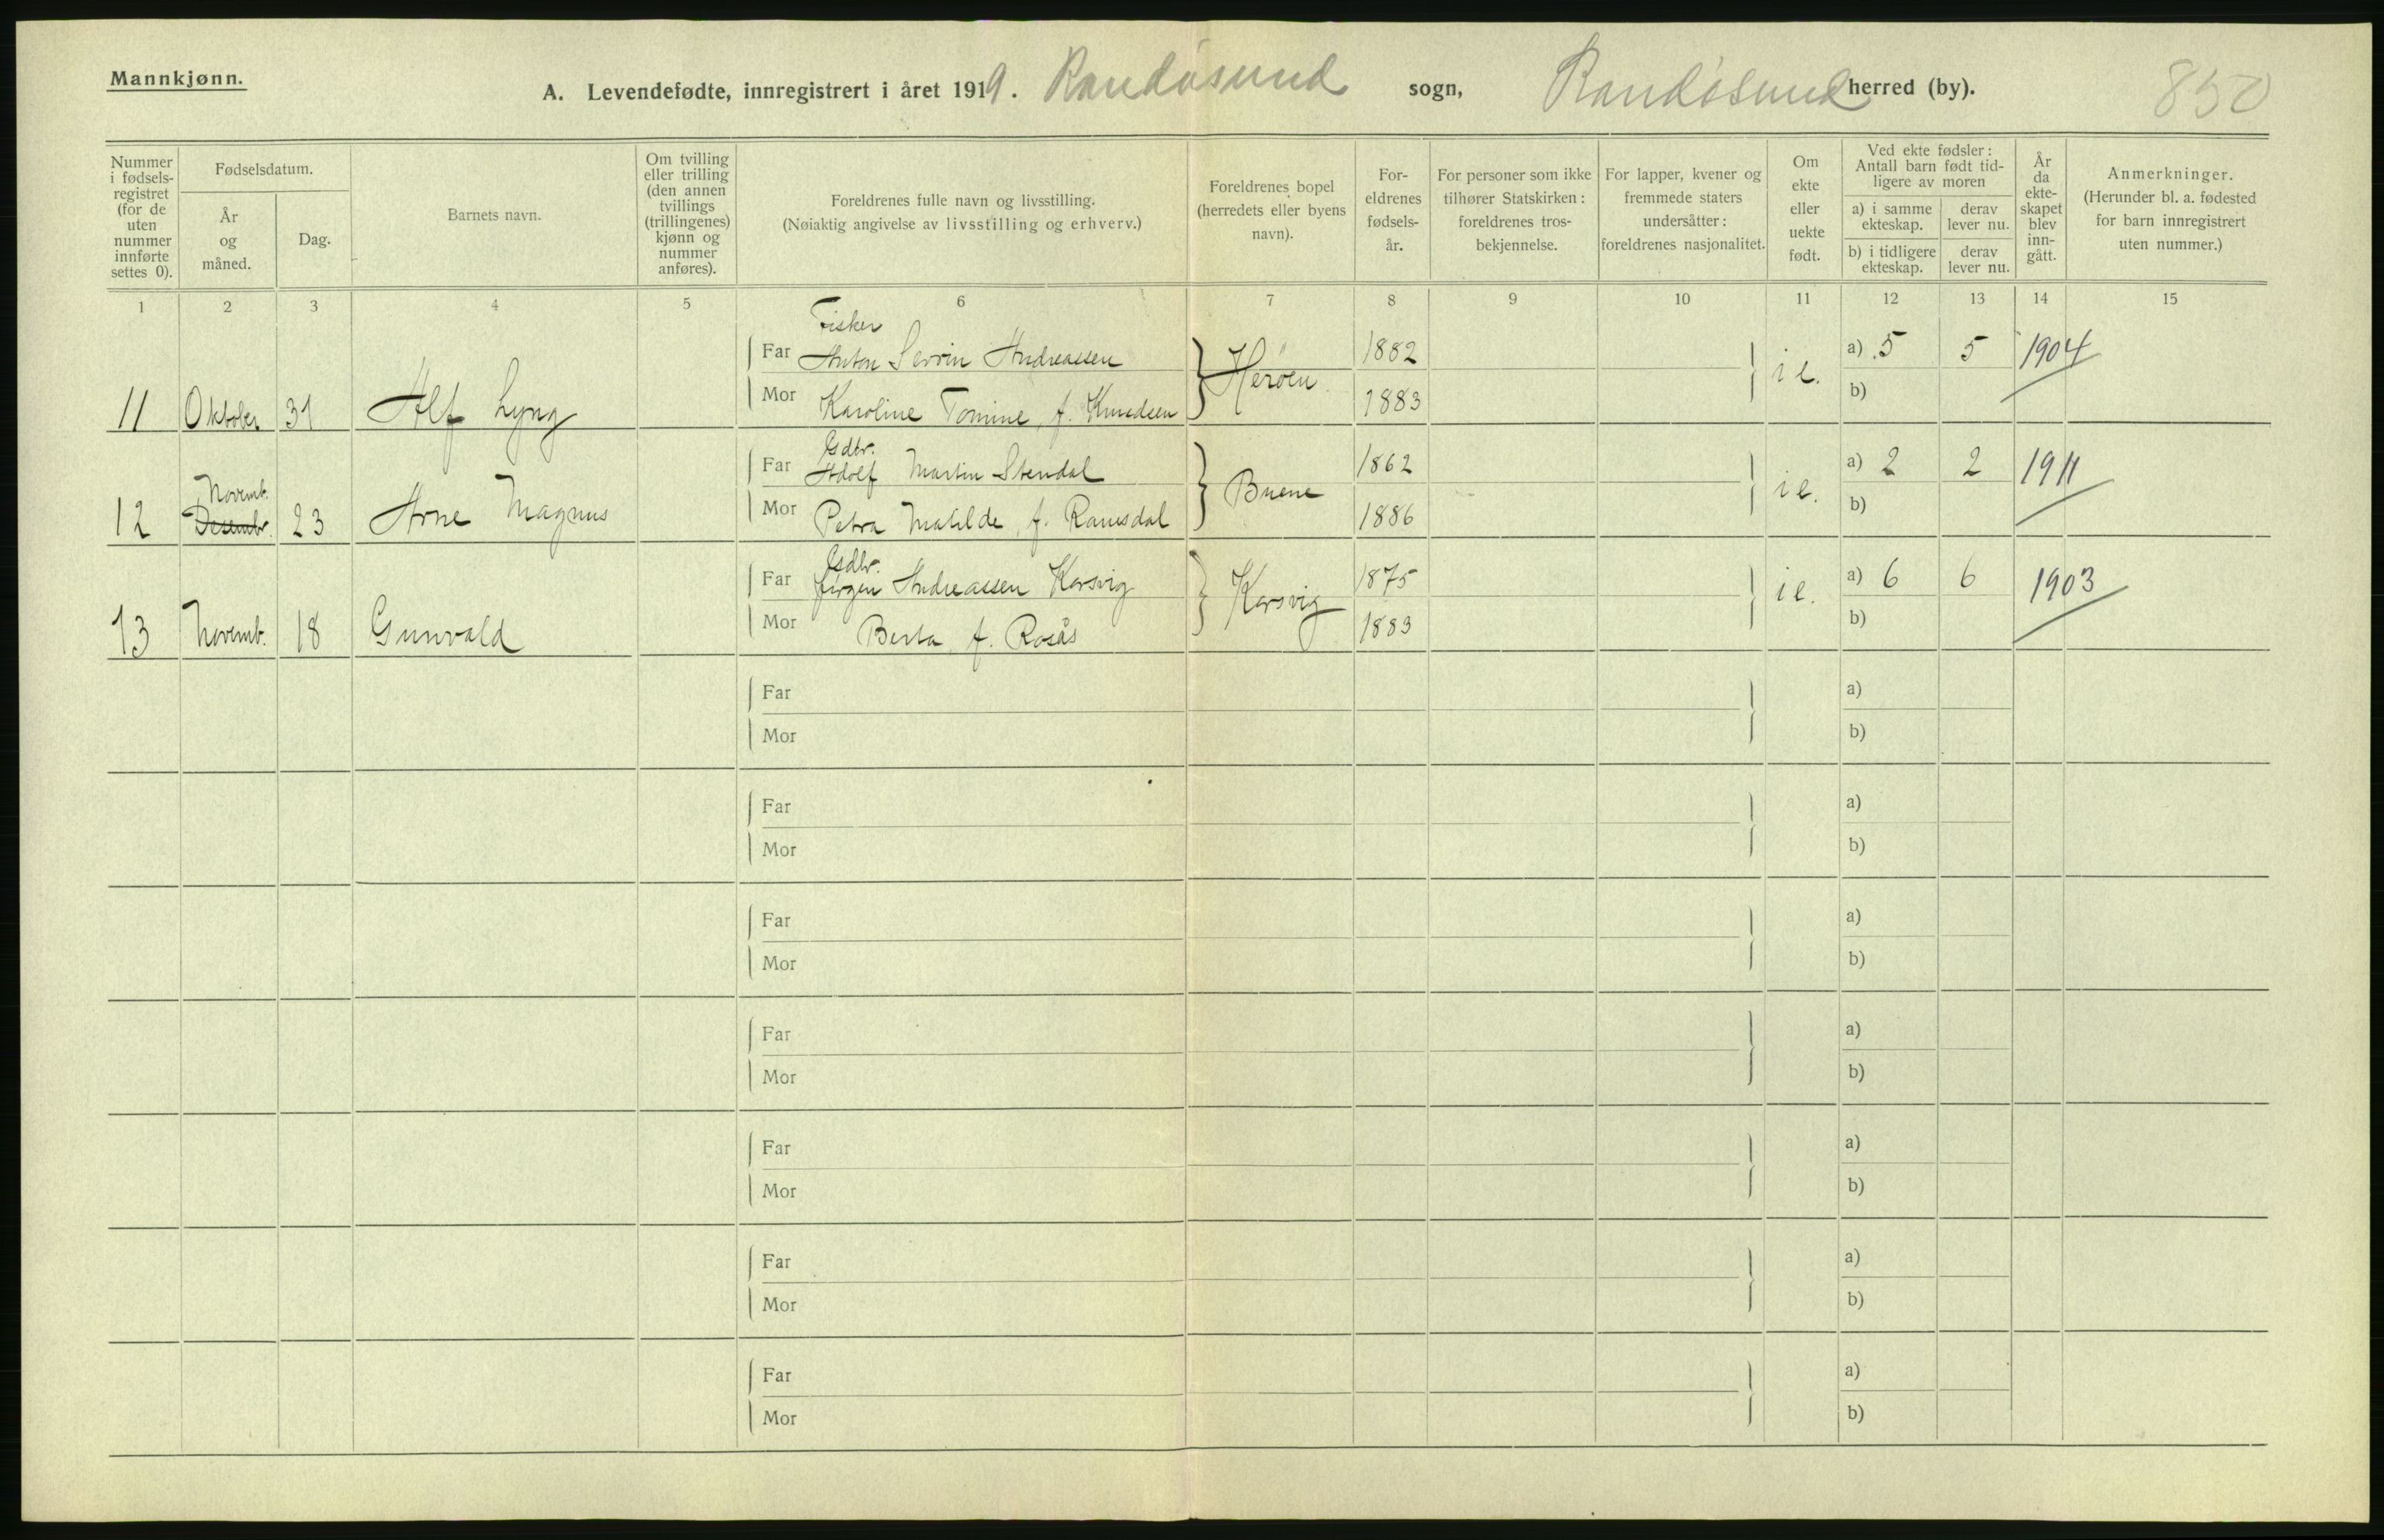 Mannkjønn.
A. Levendefødte, innregistrert i året 1919. Randøsund sogn, Randøsund herred (by). 850
Nummer i fødsels-registret (for de uten nummer innførte settes 0).
Fødselsdatum.
År og måned.
Dag.
Barnets navn.
Om tvilling eller trilling (den annen tvillings (trillingenes) kjønn og nummer anføres).
Foreldrenes fulle navn og livsstilling.
(Nøiaktig angivelse av livsstilling og erhverv.)
Foreldrenes bopel (herredets eller byens navn).
For-eldrenes fødsels-år.
For personer som ikke tilhører Statskirken: foreldrenes tros-bekjennelse.
For lapper, kvener og fremmede staters undersåtter: foreldrenes nasjonalitet.
Om ekte eller uekte født.
Ved ekte fødsler: Antall barn født tid-ligere av moren
a) i samme ekteskap. derav lever nu.
b) i tidligere ekteskap. derav lever nu.
År da ekte-skapet blev inn-gått.
Anmerkninger.
(Herunder bl. a. fødested for barn innregistrert uten nummer.)
1 2 3 4 5 6 7 8 9 10 11 12 13 14 15
Fisker
Far Anton Servin Andreassen 1882 a) 5 5 1904
11 Oktober 31 Alf Lyng Mor Karoline Tomine, f. Knudsen Herøen 1883 i e. b)
Gdbr.
Far Adolf Martin Stendal 1862 a) 2 2 1911
Novemb.
12 Desembr. 23 Arne Magnus Mor Petra Matilde, f. Ramsdal Buene 1886 i e. b)
Gdbr.
Far Jørgen Andreassen Korsvig 1875 a) 6 6 1903
13 Novemb. 18 Gunvald Mor Berta, f. Rosås Korsvig 1883 i e. b)
Far a)
Mor b)
Far a)
Mor b)
Far a)
Mor b)
Far a)
Mor b)
Far a)
Mor b)
Far a)
Mor b)
Far a)
Mor b)